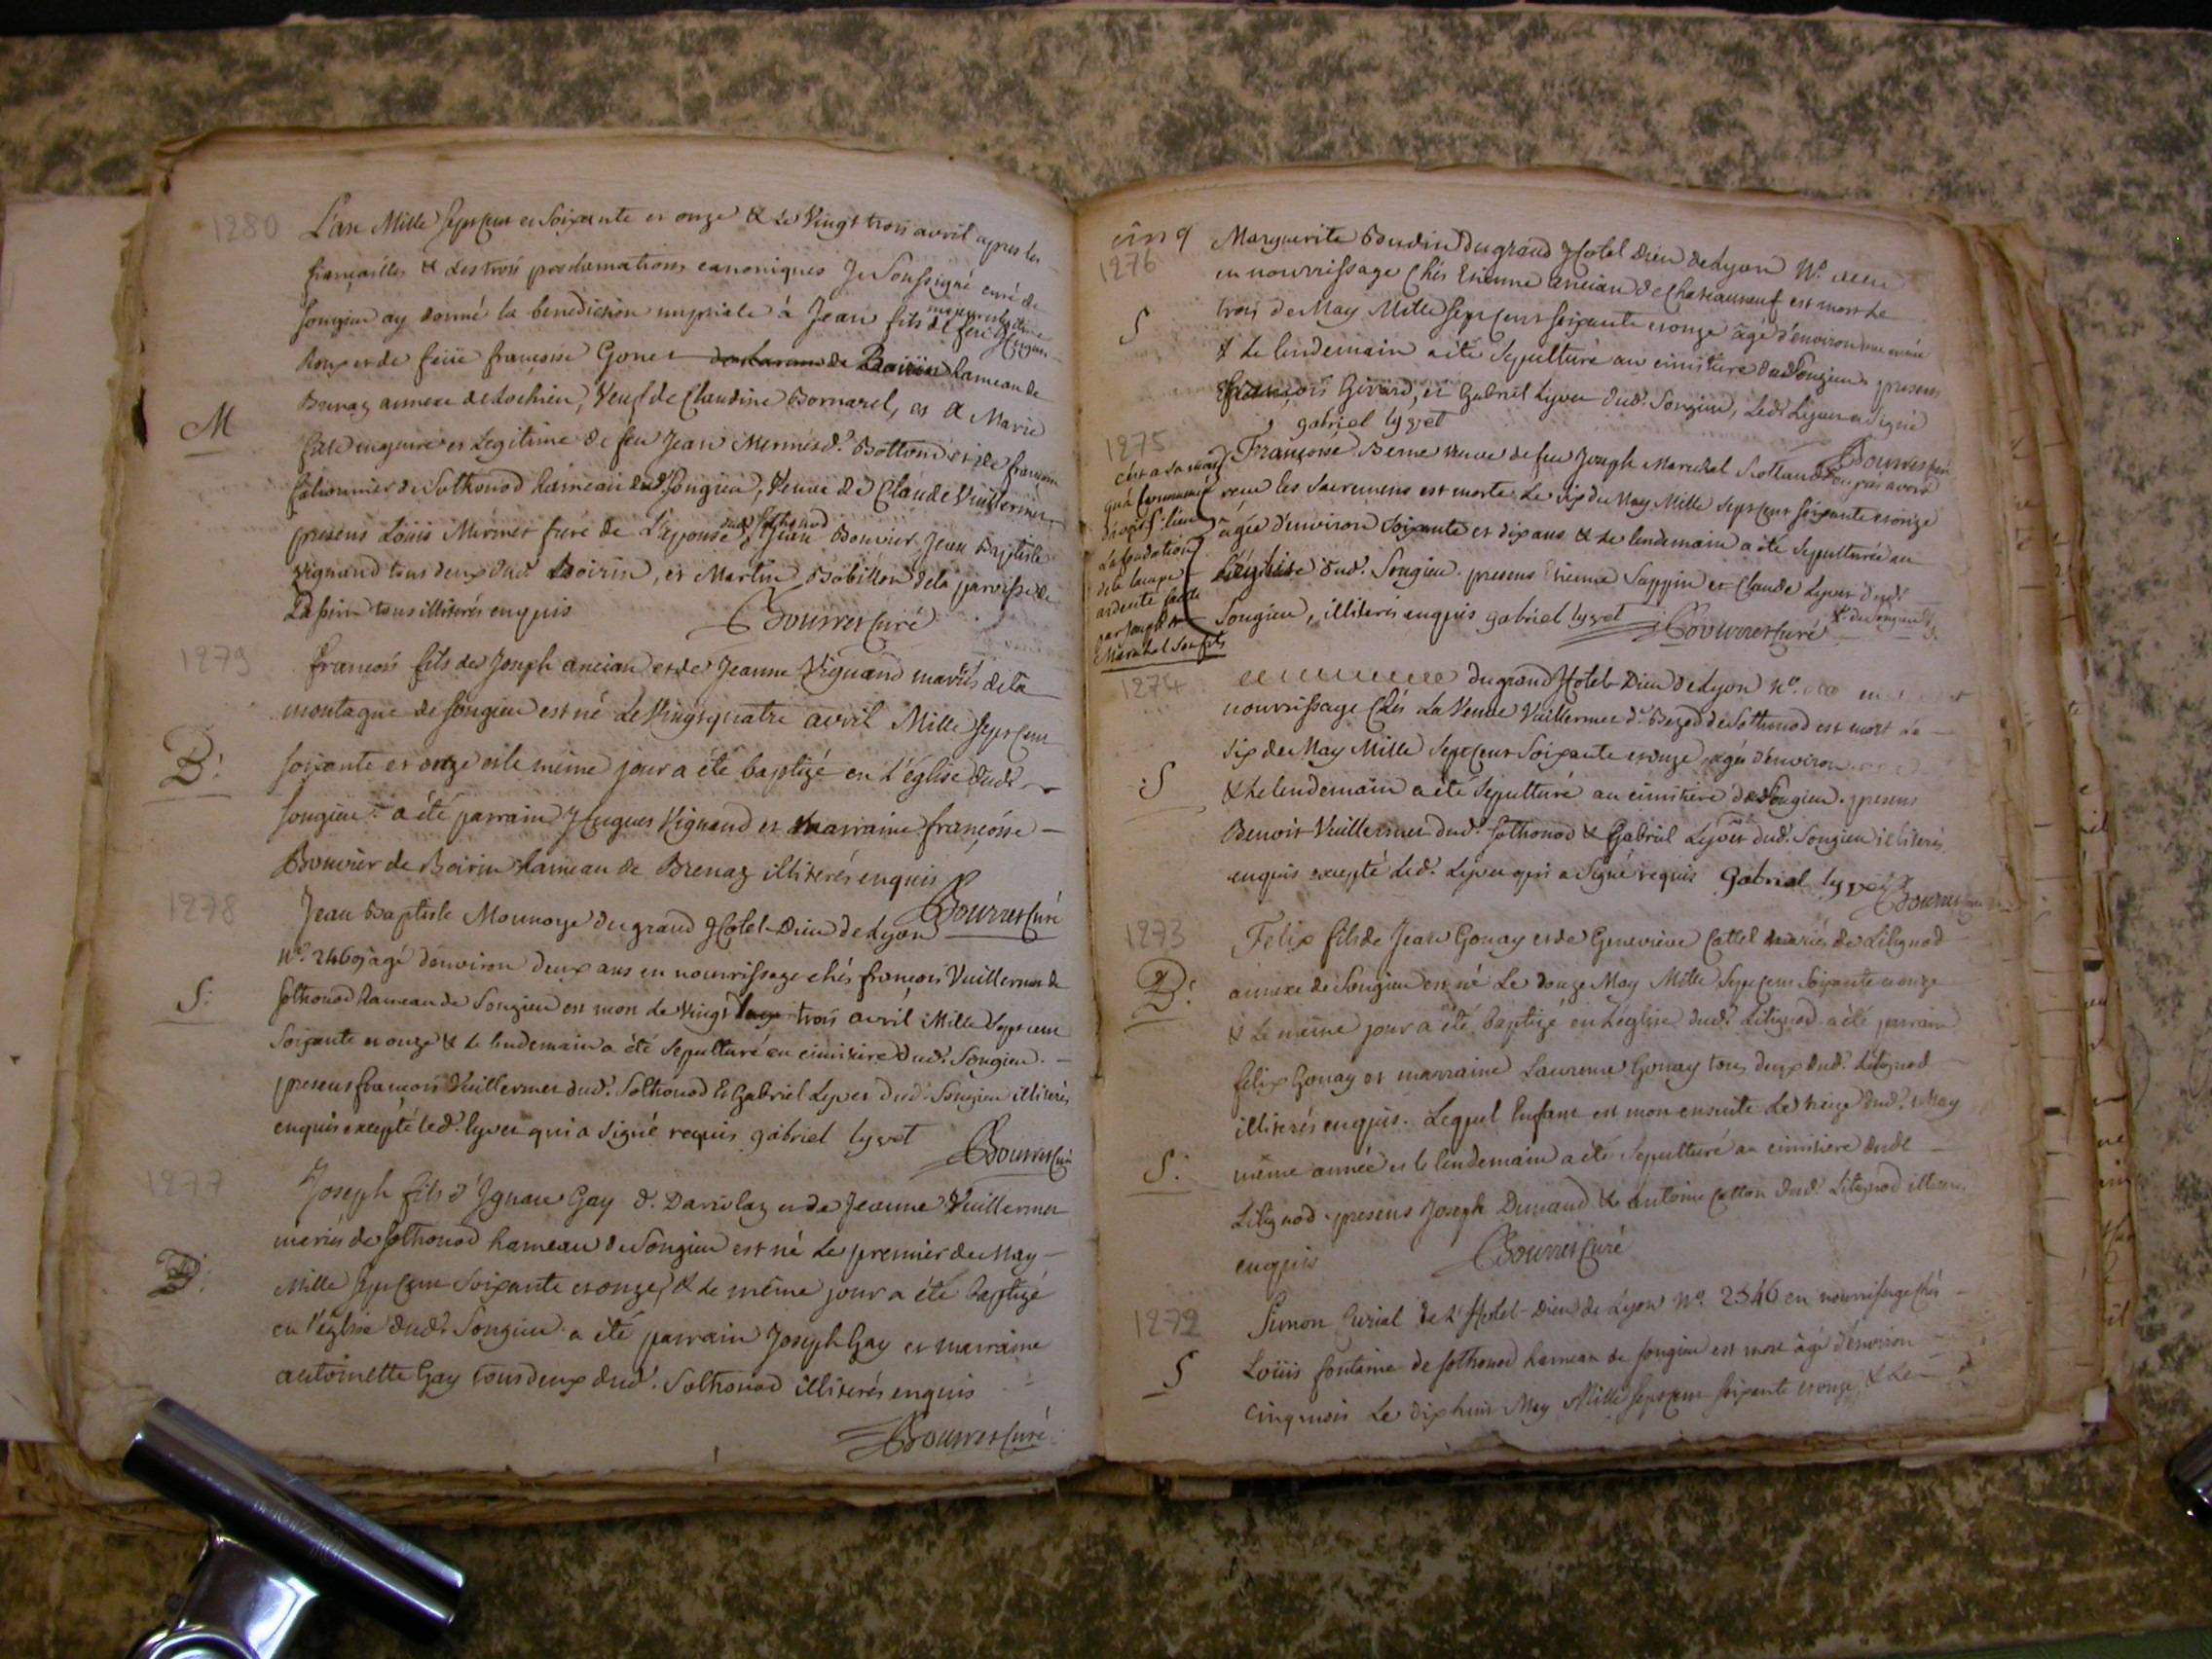 1280
L'an Mille sept cent et soixante et onze & le vingt trois avril apres les
fiançailles & les trois proclamations canoniques Je soussigné curé de
songieu ay donné la benediction nuptiale à Jean fils majeur et legitime de feu
Roux et de feüe francoise Gonet hameau de
Brenaz annexe de Lochieu, Veuf de Claudine Bornarel, et a Marie
M
fille majeure et Legitime de feu Jean Mermet d. Botton et de francoise
de Sothonod hameau dud. songieu, Veuve de Claude Vuillermet
presens Loüis Mermet frere de L'epouse dud. Sothonod, Jean Bouvier Jean Baptiste
Vignand tous deux dud. Boirin, et Martin Bobillon de la paroisse de
tous illiterés enquis
Bourret Curé
1279
francois fils de Joseph ancian et de Jeanne Vignand mariés de la
montagne de songieu est né le Vingt quatre avril Mille sept cent
B.
soixante et onze et le meme jour a été baptizé en l'église dud.
songieu. a été parrain Hugues Vignand et marraine françoise
Bouvier de Boirin hameau de Brenaz illiterés enquis
Bourret Curé
1278
Jean Baptiste Monnoye du grand Hotel-Dieu de Lyon
N°. 2460 agé d'environ deux ans en nourrissage chés francois Vuillermet de
S.
sothonod hameau de Songieu est mort le vingt trois avril Mille Sept cent
Soixante et onze & le lendemain a été sepulturé au cimitiere dud. Songieu.
presens francois Vuillermet dud. Sothonod & Gabriel Lyvet dud. Songieu illiterés
enquis excepté led. lyvet qui a signé requis gabriel lyvet
Bourret Curé
1277
Joseph fils d'Ignace Gay d. Dariolaz et de Jeanne Vuillermet
mariés de Sothonod hameau de Songieu est né le premier de May
B.
Mille sept cent soixante et onze, & le même jour a été baptizé
en l'église dud. Songieu. a été parrain Joseph Gay et marraine
antoinette Gay tous deux dud. Sothonod illiterés enquis
Bourret Curé
cinq
1276
Marguerite Boudin du grand Hotel Dieu de Lyon N°.
en nourrissage chés Etienne ancian de Chateauneuf est morte le
S
trois de May Mille sept cent soixante et onze âgé d'environ
& le lendemain a été sepulturé au cimitiere dud Songieu. presens
françois Girard, et Gabriel Lyvet dud. Songieu, led. Lyvet a signé
gabriel lyvet
Bourret Curé
1275
Françoise Berne veuve de feu Joseph Marechal Sottaud apres avoir
reçu les sacremens est morte le six de May Mille sept cent soixante et onze
âgée d'environ soixante et dix ans & le lendemain a été sepulturée au
dud. Songieu. presens Etienne Sappin et Claude Lyvet dud.
Songieu, illiterés enquis gabriel lyvet
Bourret Curé
c'est a sa
qu'a commencé
d'avoir lieu
la fondation
de la lampe
ardente faite
par Joseph
Marechal son fils
1274
du grand Hotel-Dieu de Lyon N°. en
nourrissage chés La Veuve Vuillermet d. de Sothonod est mort le
six de May Mille sept cent soixante et onze agé d'environ
S
& le lendemain a été sepulturé au cimitiere de Songieu. presens
Benoit Vuillermet dud. Sothonod & Gabriel Lyvet dud. Songieu illiterés
enquis excepté led. Lyvet qui a signé requis Gabriel lyvet
Bourret
1273
Felix fils de Jean Gonay et de Genevieve Cattel mariés de Lilignod
B.
annexe de Songieu est né le douze May Mille sept cent soixante et onze
& le même jour a été baptizé en l'eglise dud. Lilignod a été parrain
felix Gonay et marraine Laurence Gonay tous deux dud. Lilignod
illiterés enquis. Lequel Enfant est mort ensuite le treize dud. May
S.
même année et le lendemain a été sepulturé au cimitiere dud.
Lilignod presens Joseph Dumand & antoine Catton dud. Lilignod illiterés
enquis
Bourret Curé
1272
Simon Curial de l'Hotel-Dieu de Lyon N°. 2546 en nourrissage chés
S
Loüis fontaine de sothonod hameau de songieu est mort âgé d'environ
cinq mois le dix huit May Mille sept cent soixante et onze, & le